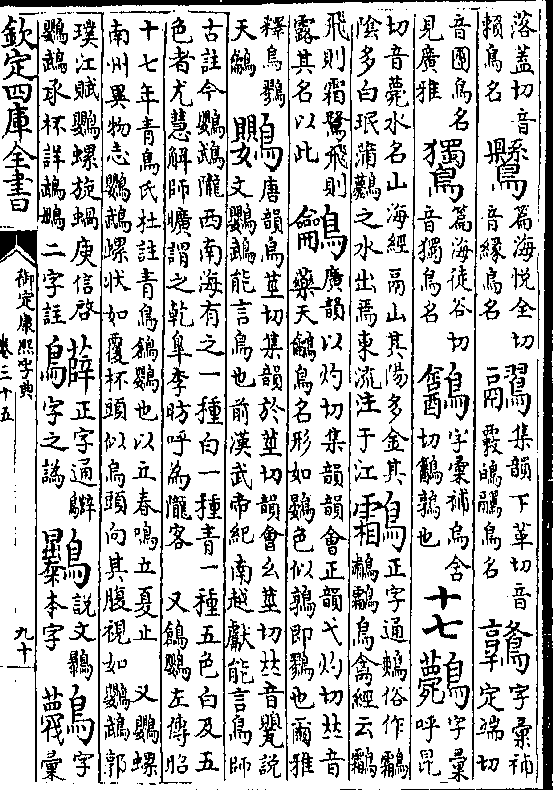 落蓋切音賴鳥名
篇海悅全切音緣鳥名
集韻下革切音翮鷇鳥名
字彙補定端切音團鳥名見廣雅
鸀篇海徒谷切音獨鳥名
字彙補烏含切鵪鶉也
十七
字彙呼昆切音薨水名山海經鬲山其陽多金其陰多白珉蒲之水出焉東流注于江
鸘正字通鷞俗作鸘鸘鳥禽經云鸘飛則霜鷺飛則露其名以此
鸙廣韻以灼切集韻韻會正韻弋灼切𠀤音藥天鸙鳥名形如鷃色似鶉即鷚也爾雅釋鳥鷚天鸙
鸚唐韻烏莖切集韻於莖切韻會幺莖切𠀤音甖說文鸚䳇能言鳥也前漢武帝紀南越獻能言鳥師古註今鸚䳇隴西南海有之一種白一種青一種五色白及五色者尤慧解師曠謂之乾皐李昉呼為隴客 又鶬鷃左傳昭十七年青鳥氏杜註青鳥鶬鷃也以立春鳴立夏止 又鸚螺南州異物志鸚䳇螺狀如覆杯頭似鳥頭向其腹視如鸚䳇郭璞江賦鸚螺旋蝸庾信啓鸚䳇承杯詳䳇二字註
正字通字之譌
說文鸔本字
字彙
欽定四庫全書
御定康熙字典
卷三十五
九十